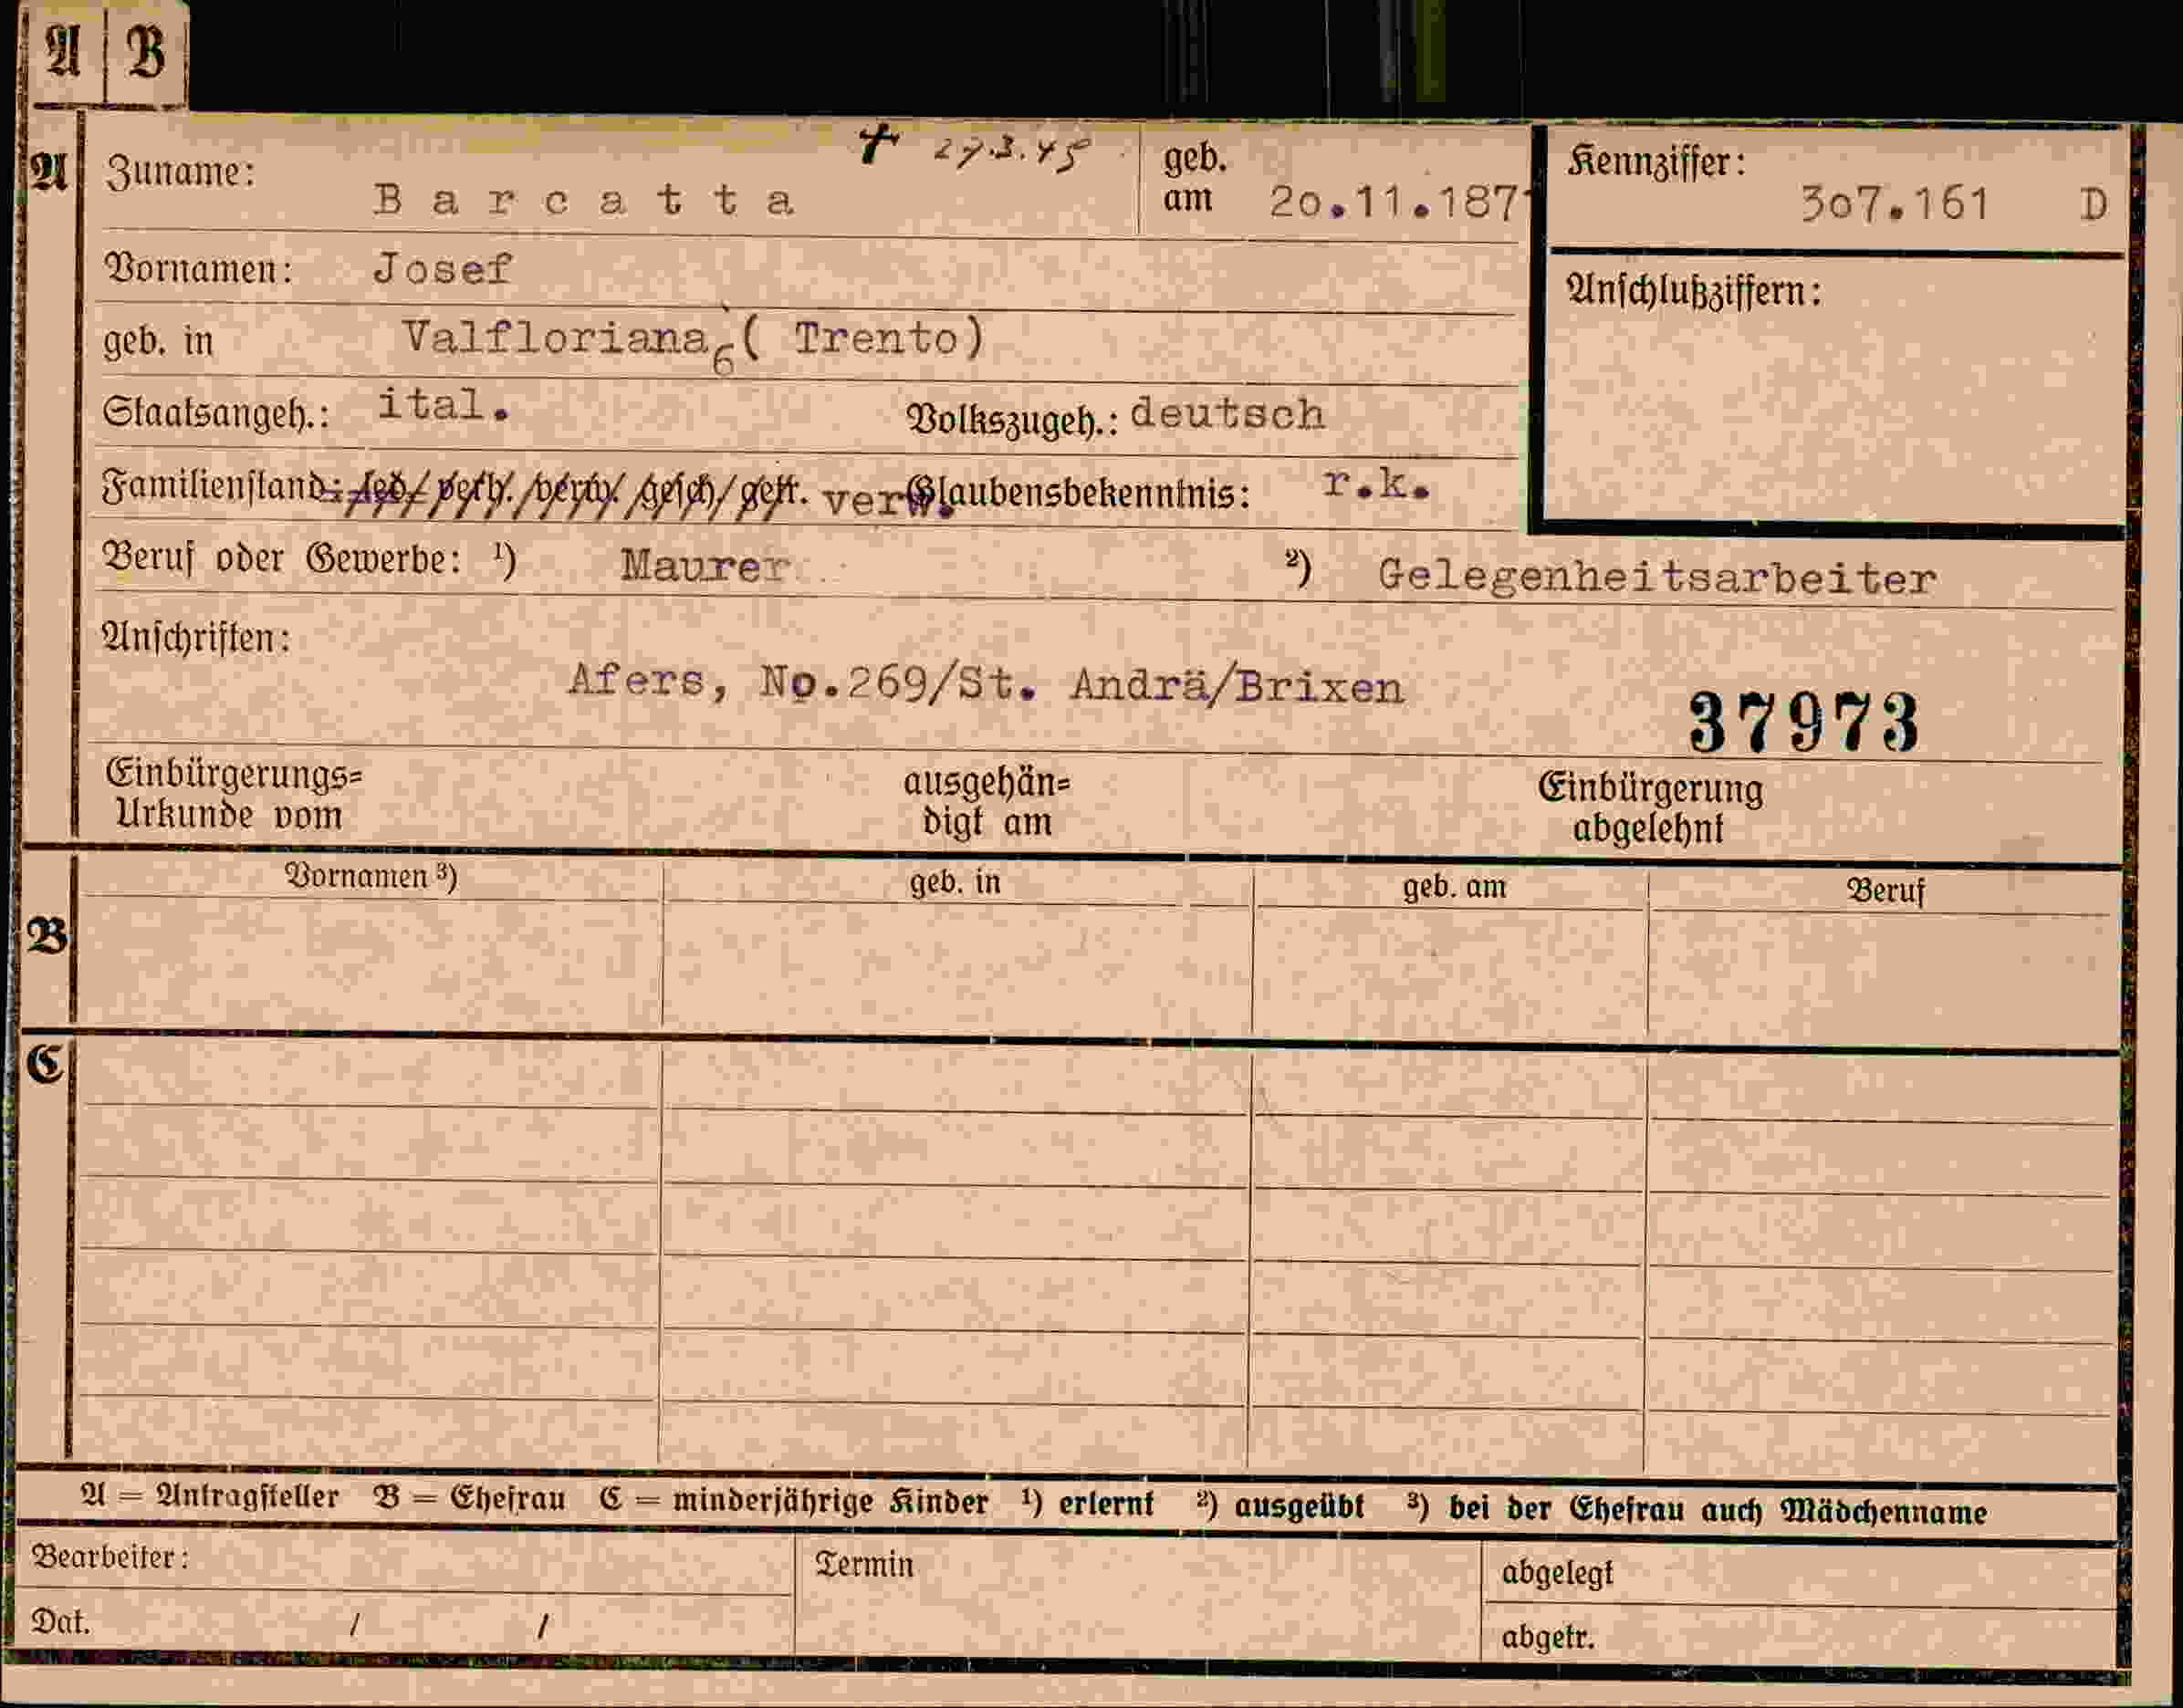 A B
A Zuname: B a r c a t t a † 27.3.45 geb. am 20.11.1871 Kennziffer: 307.161 D
Vornamen: Josef
Anschlußziffern:
geb. in Valfloriana, ( Trento)
Staatsangeh.: ital. Volkszugeh.: deutsch
Familienstand: led./ verh./ verw./ gesch./ getr. verw. Glaubensbekenntnis: r.k.
Beruf oder Gewerbe: ¹) Maurer ²) Gelegenheitsarbeiter
Anschriften:
Afers, No.269/St. Andrä/Brixen
37973
Einbürgerungs= ausgehän= Einbürgerung
Urkunde vom digt am abgelehnt
B Vornamen ³) geb. in geb. am Beruf
C
A = Antragsteller B = Ehefrau C = minderjährige Kinder ¹) erlernt ²) ausgeübt ³) bei der Ehefrau auch Mädchenname
Bearbeiter: Termin abgelegt
Dat. / / abgetr.